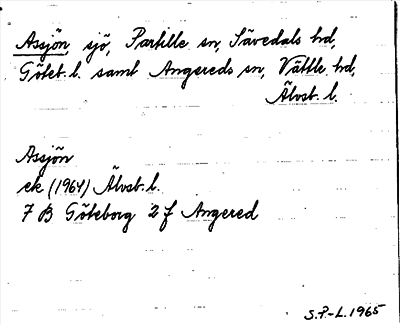 Assjön sjö, Partille sn, Sävedals hd,
Göteb. l. samt Angereds sn, Vättle hd,
Älvsb. l.
Assjön
ek (1964) Älvsb. l.
7 B Göteborg 2 f Angered
S.P-L. 1965